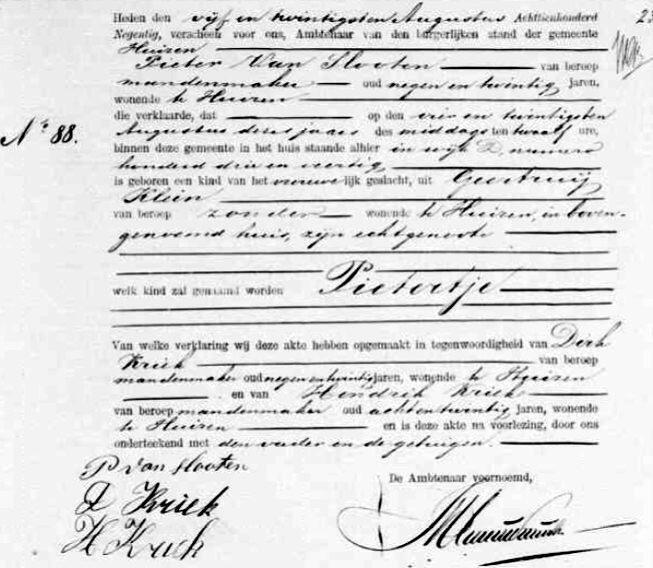 Heden den vijf en twintigsten Augustus Achttienhonderd
Negentig, verscheen voor ons, Ambtenaar van den burgerlijken stand der gemeente
Huizen
Pieter Van Slooten van beroep
mandenmaker oud negen en twintig jaren,
wonende te Huizen
die verklaarde, dat op den vier en twintigsten
Nº 88.
Augustus dezes jaars des middags ten twaalf ure,
binnen deze gemeente in het huis staande alhier in wijk D, numero
honderd drie en veertig
is geboren een kind van het vrouwelijk geslacht, uit Geertruij
Klein
van beroep zonder wonende te Huizen, in boven-
genoemd huis, zijn echtgenoote
welk kind zal genaamd worden Pietertje
Van welke verklaring wij deze akte hebben opgemaakt in tegenwoordigheid van Dirk
Kriek van beroep
mandenmaker oud negen en twintig jaren, wonende te Huizen
en van Hendrik Kriek
van beroep mandenmaker oud acht en twintig jaren, wonende
te Huizen en is deze akte na voorlezing, door ons
onderteekend met den vader en de getuigen.
P van Slooten
D Kriek
H Kriek
De Ambtenaar voornoemd,